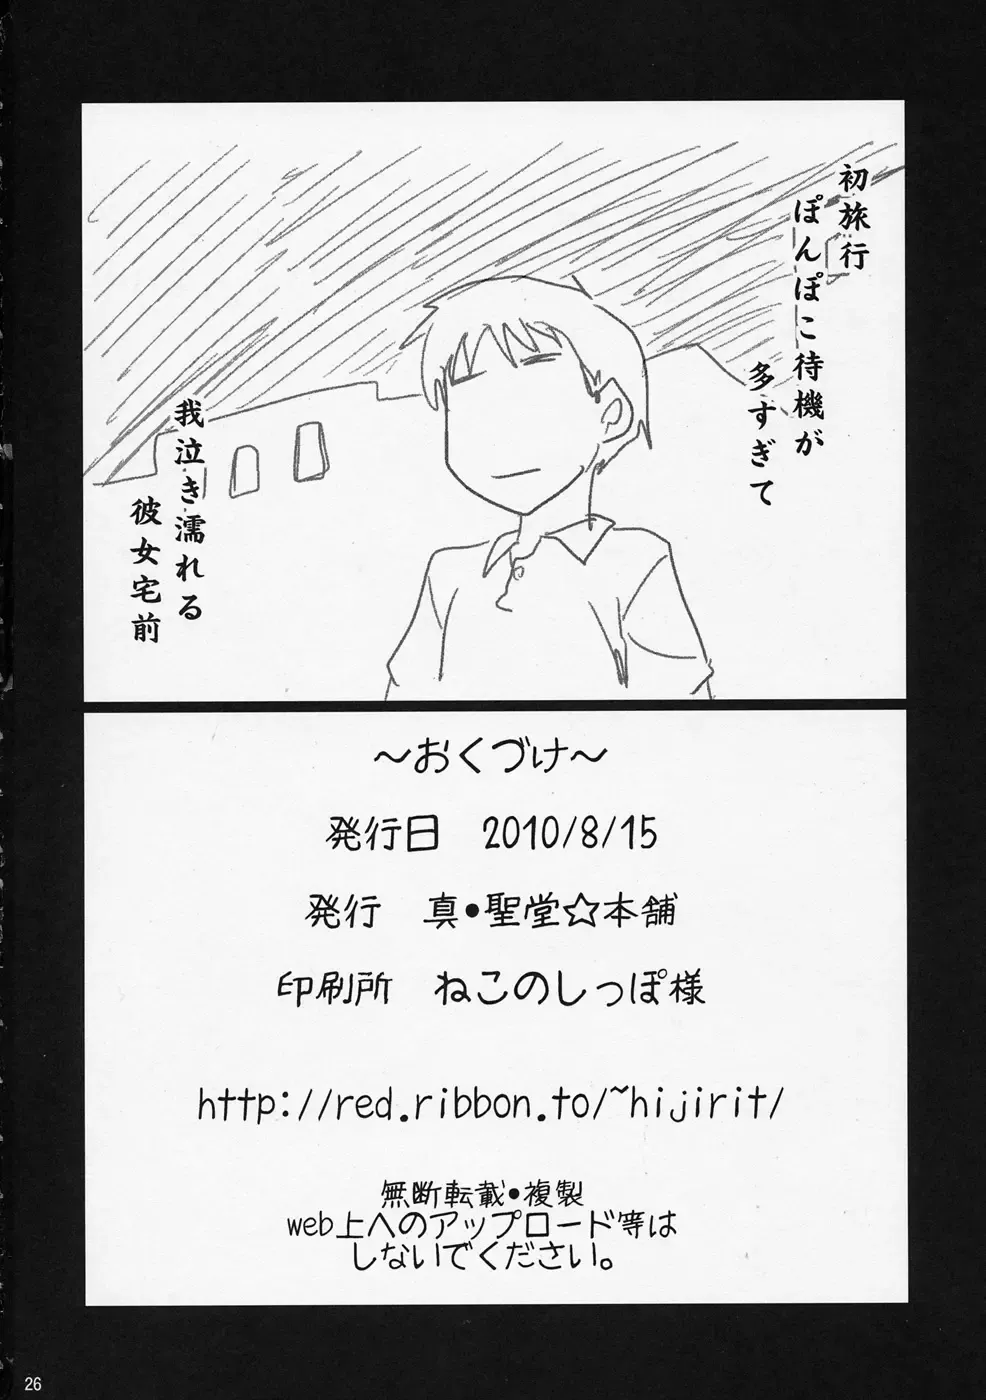 初旅行
ぽんぽこ待機が
多すぎて
我泣き濡れる
彼女宅前
～おくづけ～
発行日　2010/8/15
発行　真・聖堂☆本舗
印刷所　ねこのしっぽ様
http://red.ribbon.to/~hijirit/
無断転載・複製
web上へのアップロード等は
しないでください。
26